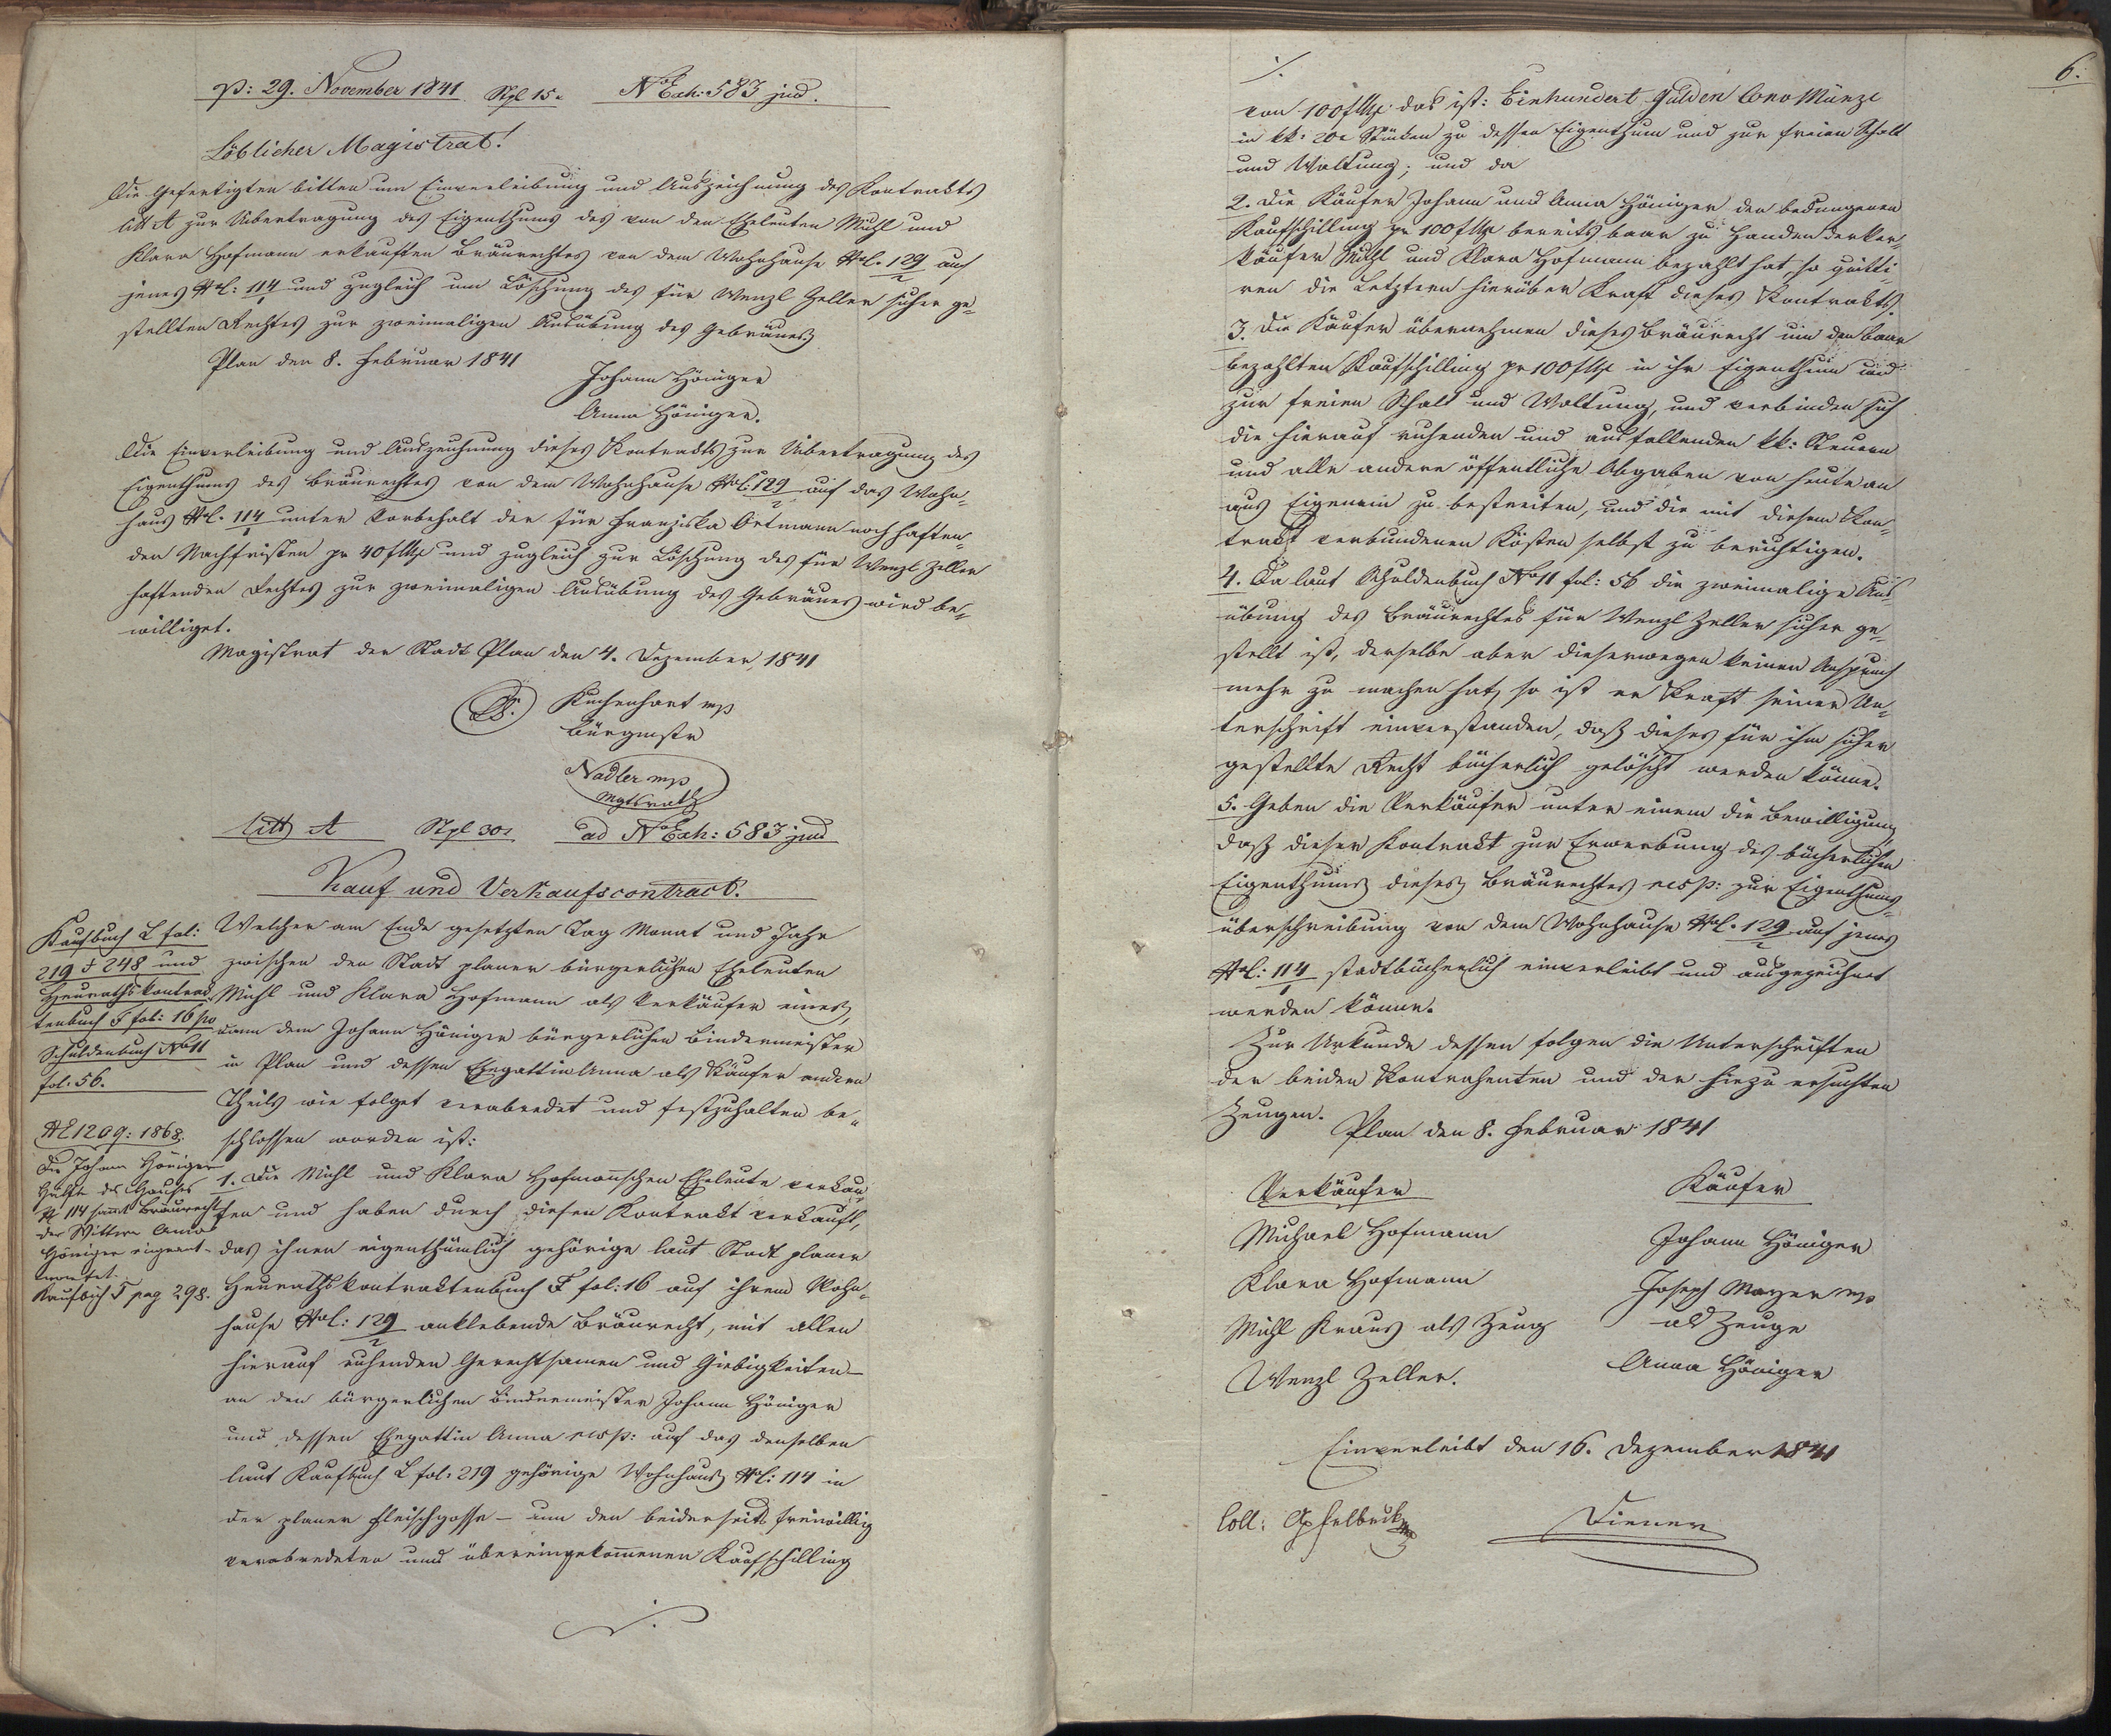 p: 29. November 1841 Stpl 15x No Exh: 583 jud.
Löblicher Magistrat!
Die Gefertigten bitten um Einverleibung und Auszeichnung des Kontrakts
litt A zur Uibertragung des Eigenthums des von den Eheleuten Michl und
Klara Hofmann erkauften Bräurechtes von dem Wohnhause No C. 129/2 auf
jenes No C: 114/1 und zugleich um Löschung des für Wenzl Zeller sicher ge-
stellten Rechtes zur zweimaligen Ausübung des Gebräues
Plan den 8. Februar 1841
Johann Höniger
Anna Höniger.
Die Einverleibung und Auszeichnung dieses Kontrakts zur Uibertragung des
Eigenthums des Bräurechtes von dem Wohnhause No C: 129/2 auf das Wohn-
haus No C. 114/1 unter Vorbehalt der für Franziska Ortmann noch haften-
den Nachfristen pr 40 f CMze und zugleich zur Löschung des für Wenzl Zeller
haftenden Rechtes zur zweimaligen Ausübung des Gebräues wird be-
williget.
Magistrat der Stadt Plan den 4. Dezember 1841
L.S. Kuchenhart mp
Bürgmstr
Nadler mp
Mgtsrath
litt A Stpl 30x ad No Exh: 583 jud
Kauf und Verkaufscontract.
Kaufbuch L fol:
219 & 248 und
Heurathskontrak
tenbuch F fol: 16 po
Schuldenbuch No 11
fol. 56.
Welcher am Ende gesetzten Tag Monat und Jahr
zwischen den Stadt planer bürgerlichen Eheleuten
Michl und Klara Hofmann als Verkäufer eines,
dann dem Johann Höniger bürgerlichen Bindermeister
in Plan und dessen Ehegattin Anna als Käufer andern
Theils wie folget verabredet und festzuhalten be-
schlossen worden ist:
NE 1209: 1868.
Die Johann Höniger
Hälfte des Hauses
No 114 sammt Bräurecht
der Wittwe Anna
Höniger eingeant-
wortet.
Kaufbuch T pag 298.
1. Die Michl und Klara Hofmannschen Eheleute verkau-
fen und haben durch diesen Kontrakt verkauft,
das ihnen eigenthümlich gehörige laut Stadt planer
Heurathskontraktenbuch F fol: 16 auf ihrem Wohn-
hause No C: 129/2 anklebende Bräurecht, mit allen
hierauf ruhenden Gerechtsamen und Giebigkeiten –
an den bürgerlichen Bindermeister Johann Höniger
und dessen Ehegattin Anna resp: auf das denselben
laut Kaufbuch L fol. 219 gehörige Wohnhaus No C: 114 in
der planer Fleischgasse – um den beiderseits freiwillig
verabredeten und übereingekommenen Kaufschilling
./.
6.
./.
von 100 f CMze das ist: Einhundert Gulden Conv Münze
in kk: 20x Stücken zu dessen Eigenthum und zur freien Schalt
und Waltung; und da
2. Die Käufer Johann und Anna Höniger den bedungenen
Kaufschilling pr 100 f CMze bereits baar zu Handen der Ver-
käufer Michl und Klara Hofmann bezahlt hat, so quitti
ren die Letztern hierüber Kraft dieses Kontrakts.
3. Die Käufer übernehmen dieses Bräurecht um den baar
bezahlten Kaufschilling pr 100 f CMze in ihr Eigenthum und
zur freien Schalt und Waltung, und verbinden sich
die hierauf ruhenden und ausfallenden kk: Steuern
und alle andere öffentliche Abgaben von heute an
aus Eigenem zu bestreiten, und die mit diesem Kon-
trakt verbundenen Kösten selbst zu berichtigen.
4. Da laut Schuldenbuch No 11 fol: 56 die zweimalige Aus-
übung des Bräurechtes für Wenzl Zeller sicher ge-
stellt ist, derselbe aber dieserwegen keinen Anspruch
mehr zu machen hat, so ist er Kraft seiner Un-
terschrift einverstanden, daß dieses für ihn sicher
gestellte Recht bücherlich gelöscht werden könne.
5. Geben die Verkäufer unter einem die Bewilligung
daß dieser Kontrakt zur Erwerbung des bücherlichen
Eigenthums dieses Bräurechtes resp: zur Eigenthums-
überschreibung von dem Wohnhause No C. 129/2 auf jenes
No C: 114/1 stadtbücherlich einverleibt und ausgezeichnet
werden könne.
Zur Urkunde dessen folgen die Unterschriften
der beiden Kontrahenten und der hiezu ersuchten
Zeugen.
Plan den 8. Februar 1841
Verkäufer Käufer
Michael Hofmann Johann Höniger
Klara Hofmann Joseph Mayer mp
Michl Kraus als Zeug als Zeuge
Wenzl Zeller. Anna Höniger
Einverleibt den 16. Dezember 1841
Coll: Apfelbeck mp Diener